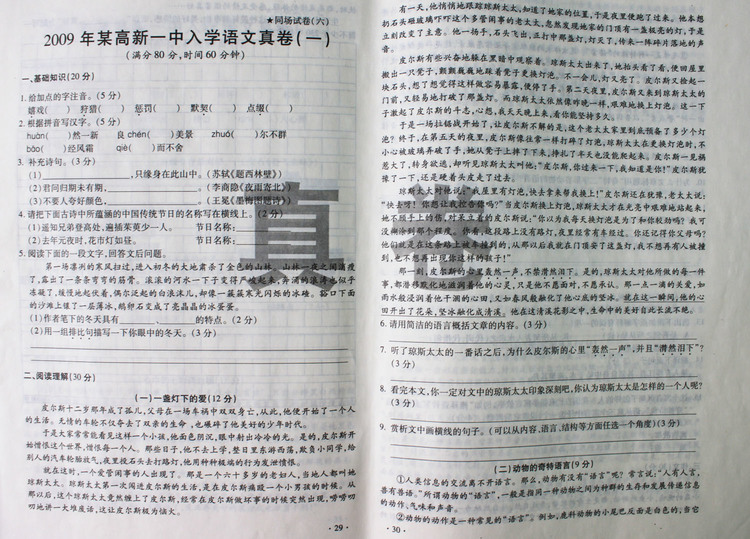 ★同场试卷(六)
2009 年某高新一中入学语文真卷(一)
(满分 80 分,时间 60 分钟)
一、基础知识(20 分)
1. 给加点的字注音。(5 分)
嬉戏( ) 狩猎( ) 惩罚( ) 默契( ) 点缀( )
2. 根据拼音写汉字。(5 分)
huàn( )然一新 良 chén( )美景 zhuó( )尔不群
bǎo( )经风霜 qiè( )而不舍
3. 补充诗句。(3 分)
(1) ,只缘身在此山中。(苏轼《题西林壁》)
(2)君问归期未有期, 。(李商隐《夜雨寄北》)
(3)不要人夸好颜色, 。(王冕《墨梅图题诗》)
4. 请把下面古诗中所蕴涵的中国传统节日的名称写在横线上。(2 分)
(1)遥知兄弟登高处,遍插茱萸少一人。 节日名称:
(2)去年元夜时,花市灯如昼。 节日名称:
5. 阅读下面的一段文字,回答文后问题。
第一场凛冽的寒风扫过,进入初冬的大地肃杀了金色的山林。山林一夜之间落瘦
了,露出了一条条弯弯的筋骨。滚滚的河水一下子变得严峻起来,奔涌的浪涛也似乎
冻凝了,缓慢地起伏着,偶尔泛起的白沫沫儿,却像一簇簇寒光闪烁的冰碴。豁口下面
的沙滩上镀了一层薄冰,鹅卵石变成了亮晶晶的冰蛋蛋。
(1)作者笔下的冬天具有 、 的特点。(2 分)
(2)用一组排比句描写一下你眼中的冬天。(3 分)
二、阅读理解(30 分)
(一)一盏灯下的爱(12 分)
皮尔斯十二岁那年成了孤儿,父母在一场车祸中双双身亡,从此,他便开始了一个人
的生活。无情的车轮不仅夺去了双亲的生命,也碾碎了他美好的少年时代。
于是大家常常能看见这样一个小孩,他面色阴沉,眼中射出冷冷的光。是的,皮尔斯开
始憎恨这个世界,憎恨每一个人。那些日子,他不去上学,整日里东游西荡,欺负小同学,给
别人的汽车轮胎放气,夜里投石头去打路灯,他用种种极端的行为发泄憎恨。
就在这时,一个爱管闲事的人出现了。那是一个六十多岁的老妇人,当地人都叫她
琼斯太太。琼斯太太第一次闯进皮尔斯的生活,是在皮尔斯痛殴一个小男孩的时候。从
那以后,这个琼斯太太竟然缠上了皮尔斯,经常在皮尔斯做坏事的时候突然出现,唠唠叨
叨地讲一大堆废话,这让皮尔斯极为恼火。
· 29 ·
有一天,他悄悄地跟踪琼斯太太,知道了她家的位置,于是夜里便跑了过来。他本想
扔石头砸玻璃吓吓这个多管闲事的老太太,忽然发现她家的门顶有一盏极亮的灯,于是
立刻改变了主意。他一扬手,石头飞出,正打中那盏灯,灯灭了,传来一阵碎片落地的声
音。
皮尔斯有些兴奋地躲在黑暗中观察着。琼斯太太出来了,她抬头看了看,便回屋里
搬出一只凳子,颤颤巍巍地踩着凳子更换灯泡。不一会儿,灯又亮了。皮尔斯又捡起一
块石头,想了想觉得这样做容易暴露,便停了手。第二天夜里,皮尔斯又来到琼斯太太的
门前,又轻易地打破了那盏灯。而琼斯太太依然像昨晚一样,艰难地换上灯泡。这一下
子激起了皮尔斯的斗志,心想,我天天晚上来,看你能坚持多久。
于是一场拉锯战开始了,让皮尔斯不解的是,这个老太太家里到底预备了多少个灯
泡?终于,在第五天的夜里,皮尔斯像往常一样打碎了灯泡,琼斯太太在更换灯泡时,不
小心被玻璃弄破了手,她从凳子上摔了下来,挣扎了半天也没能爬起来。皮尔斯一见祸
惹大了,转身欲逃,却听见琼斯太太叫他:"皮尔斯,你过来一下,我知道是你!"皮尔斯犹
豫了一下,还是硬着头皮走了过去。
琼斯太太对他说:"我屋里有灯泡,快去拿来帮我换上!"皮尔斯还在犹豫,老太太说:
"快去呀!你想让我控告你吗?"当皮尔斯换上灯泡,琼斯太太才在灯光中艰难地站起来,
她不顾手上的伤,对呆立着的皮尔斯说:"你以为我每天换灯泡是为了和你较劲吗?我可
没糊涂到那个程度。你看,这段路上没有路灯,夜里经常有车经过。你还记得你父母吗?
他们就是在这条路上被车撞到的,从那以后我就在门顶安了这盏灯,我不想再有人被撞
到,也不想再出现你这样的孩子!"
那一刻,皮尔斯的心里轰然一声,不禁潸然泪下了。是的,琼斯太太对他所做的每一件
事,都潜移默化地滋润着他的心灵,只是他不愿面对,不愿承认。那一点一滴的关爱,如
雨水般浸润着他干涸的心田,又如春风般融化了他心底的坚冰。就在这一瞬间,他的心
田开出了花朵,坚冰融化成清溪。他在这清溪花影之中,生命中的美好自此长流不绝。
6. 请用简洁的语言概括文章的内容。(3 分)
7. 听了琼斯太太的一番话之后,为什么皮尔斯的心里"轰然一声",并且"潸然泪下"?
(3 分)
8. 看完本文,你一定对文中的琼斯太太印象深刻吧,你认为琼斯太太是怎样的一个人呢?
(3 分)
9. 赏析文中画横线的句子。(可以从内容、语言、结构等方面任选一个角度)(3 分)
(二)动物的奇特语言(9 分)
①人类信息的交流离不开语言。那么,动物有没有"语言"呢?常言说:"人有人言,
兽有兽语。"所谓动物的"语言",一般是指同一种动物之间为种群的生存和发展传递信息
的动作、气味和声音。
②动物的动作是一种常见的"语言"。例如,鹿科动物的小尾巴反面是白色的,当它
· 30 ·
真
卷